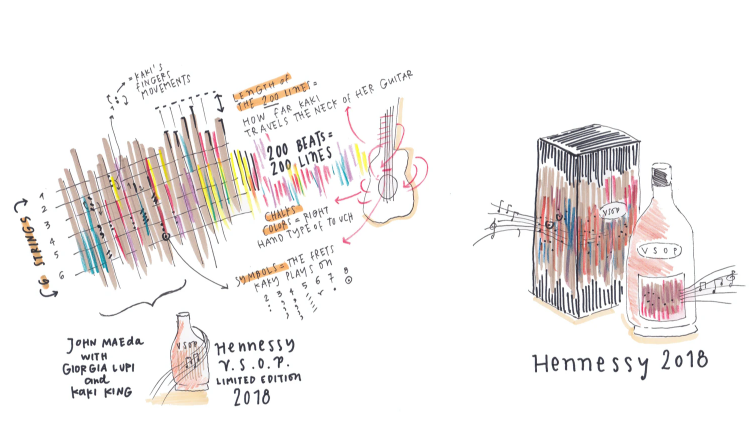 = KAKI'S
FINGERS
MOVEMENTS
LENGTH OF
THE 200 LINES =
HOW FAR KAKI
TRAVELS THE NECK OF HER GUITAR
200 BEATS =
200 LINES
1
2
3
4
5
6
6 STRINGS
CHALKS
COLORS = RIGHT
HAND TYPE OF TOUCH
SYMBOLS = THE FRETS
KAKY PLAYS ON
2 3 4 5 6 7 8
JOHN MAEda
WITH
GIORGIA LUPI
and
KAKI KING
VSOP
Hennessy
V.S.O.P.
LIMITED EDITION
2018
VSOP
VSOP
Hennessy 2018